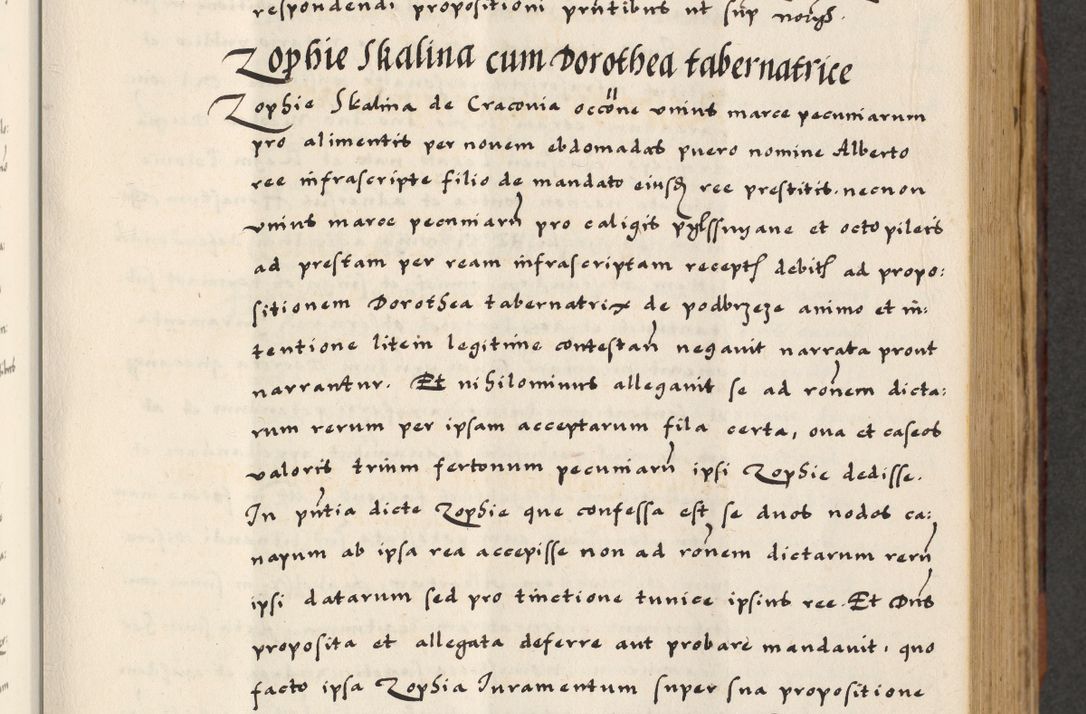 respondendi propositioni pñtibus ut sup
Zophie Skalina cum Dorothea tabernatrice
Zophie Skalina de Cracovia occōne unius marce pecuniarum
pro alimentis per novem ebdomadas puero nomine Alberto
ree infrascripte filio de mandato eiusdꝫ ree prestitis. necnon
unius marce pecuniarū pro caligis et octo pileis
ad prestam per ream infrascriptam recept debit ad propo:
sitionem Dorothea tabernatrix de podbrzeze animo et in:
tentione litem legitime contestañ negavit narrata prout
narrantur. Et nihilominus allegavit se ad rōnem dicta:
rum rerum per ipsam acceptarum fila certa, ova et caseos
valoris trium fertonum pecuniarū ipsi Zophie dedisse.
In pñtia dicte Zophie que confessa est se duos nodos ca:
napum ab ipsa rea accepisse non ad rōnem dictarum rerū
ipsi datarum sed pro tinctione tunice ipsius ree. Et Dñs
proposita et allegata deferre aut probare mandavit, quo
facto ipsa Zophia Iuramentum super sua propositione